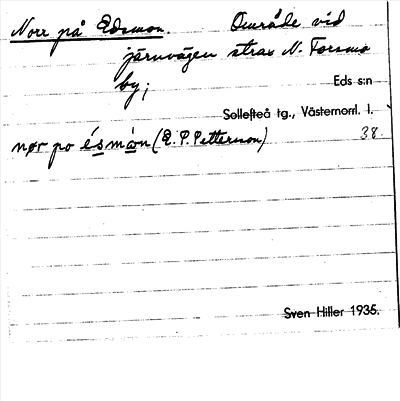 Norr på Edsmon. Område vid
järnvägen strax N. Forsmo
by;
Eds s:n
Sollefteå tg., Västernorrl. l.
nør po ésmòn (E. P. Petterson) 38.
Sven Hiller 1935.